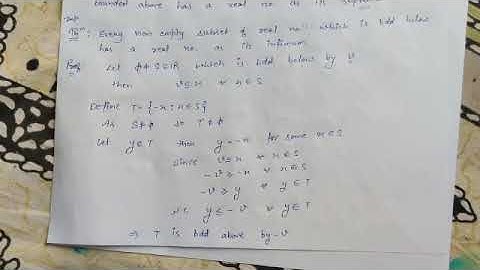 bounded above has a real no. as its supremum
Thm: Every non empty subset of real no. which is bdd below
has a real no. as its infimum.
Proof Let ϕ≠S⊂IR which is bdd below by v
then v≤x ∀ x∈S
Define T={-x : x∈S}
As S≠ϕ so T≠ϕ
Let y∈T then y=-x for some x∈S
Since v≤x ∀ x∈S
-v≥-x ∀ x∈S
-v≥y ∀ y∈T
i.e. y≤-v ∀ y∈T
⇒ T is bdd above by -v